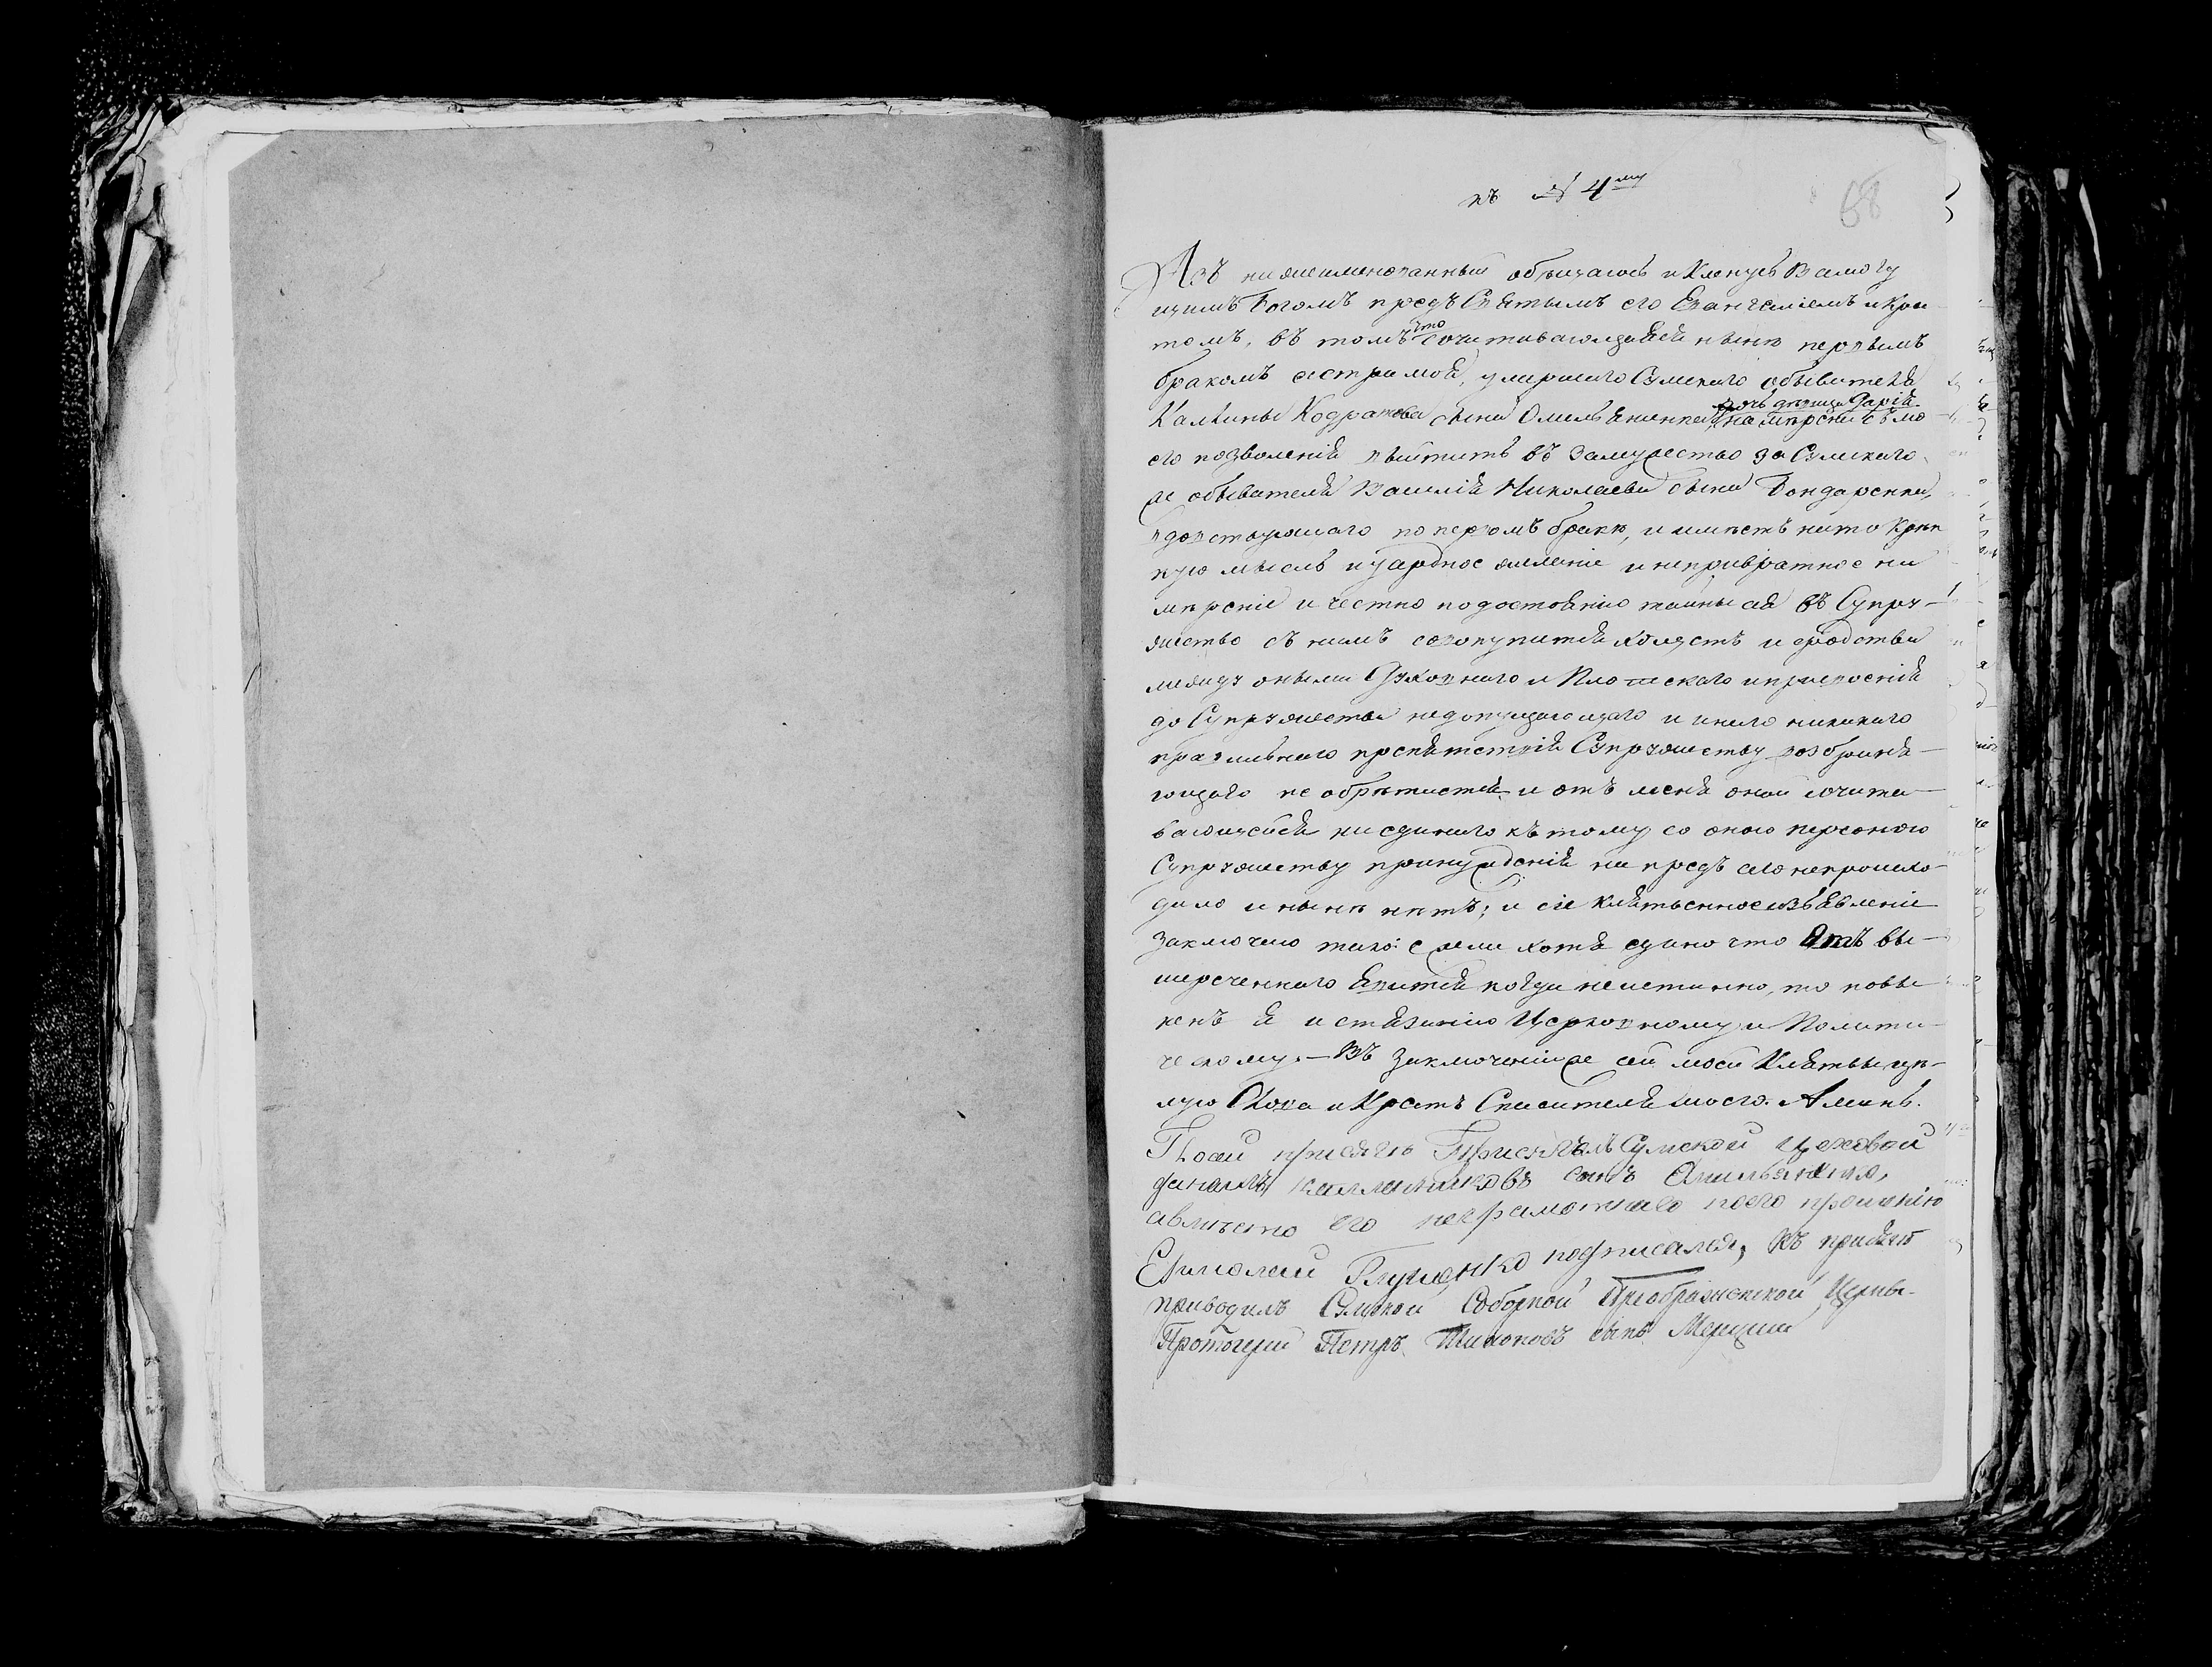 къ № 4му
68
Азъ нижеименованный обѣщаюсь и Кленусь Всемогу
щимъ Богомъ предъ Святымъ его Евангелиемъ и Крес
томъ, въ томъ что сочитавающаяся нынѣ первымъ
бракомъ сестра моя, умершаго Сумскаго обывателя
Калины Кодратова сына Омельяненка дочь дѣвица Дарія
намѣрена съ мо
его позволенія выйтить въ замужество за Сумскаго
же обывателя Василія Николаева сына Бондаренка,
вдовствующаго по первомъ бракѣ, и имѣетъ на то крѣп
кую мысль и усердное желаніе и непривратное на
мѣреніе и честно по достоянію тайны сея въ Супру-
жество съ нимъ совокупится хощетъ и сродства
между оными Духовнаго и Плотскаго и присвоенія
до Супружества недопущающаго и инаго никакого
правильнаго препятствія Супружеству возбраня-
ющаго не обрѣтается и отъ меня оной сочита-
вающейся ни единаго къ тому со оною персоною
Супружеству принужденія на предъ сего непроисхо-
дило и нынѣ нѣтъ; и сіе клятвенное изъявленіе
заключаю тако: ежели хотя едино что отъ вы-
шереченнаго явится когда неистинно, то повы
ненъ я истязанію Церковному и Полити-
ческому. — Въ заключеніи же сей моей Клятвы цѣ-
лую Слова и Крестъ Спасителя моего. Аминь.
По сей присяги Присягалъ Сумской Цеховой
сынъ Амильяненко,
а вместо его неграмотнаго по его прошенію
Глущенко подписался, къ присягѣ
приводилъ Сумской Соборной Преображенской Церкви
Протоерей Петръ сынъ